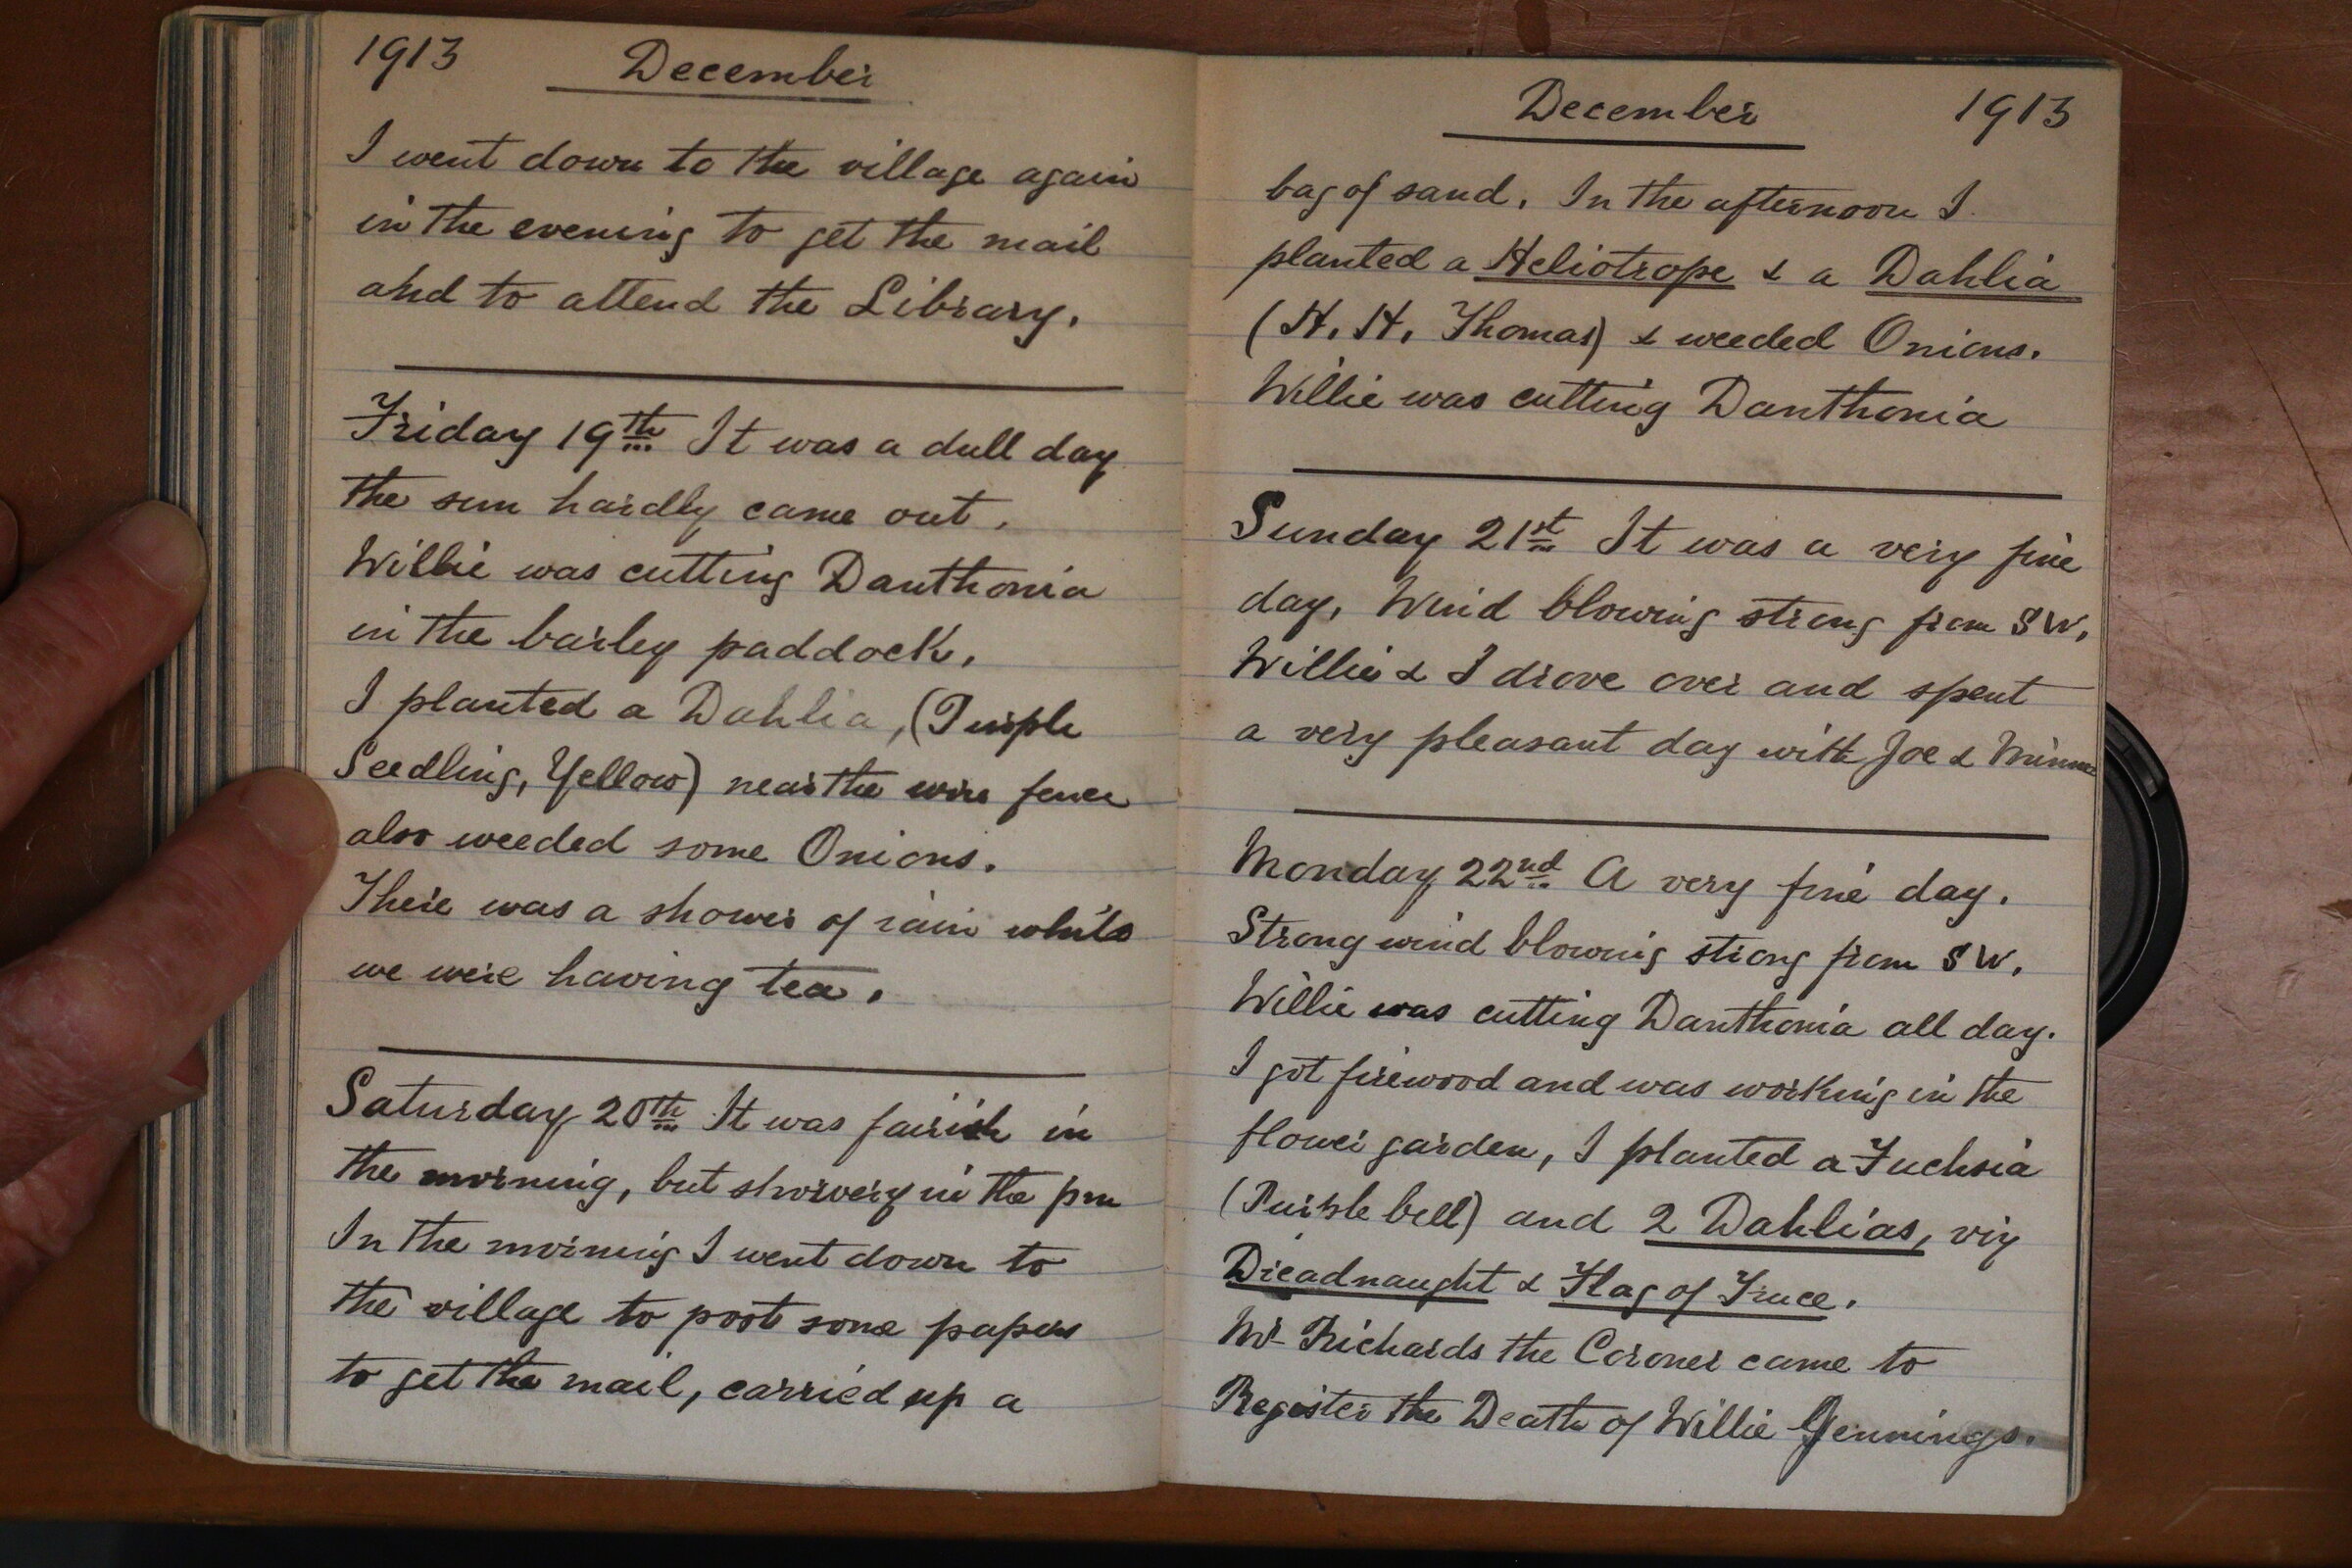 1913 December
I went down to the village again
in the evening to get the mail
and to attend the Library.
Friday 19th It was a dull day
the sun hardly came out.
Willie was cutting Danthonia
in the barley paddock.
I planted a Dahlia, (Purple
Seedling, Yellow) near the wire fence
also weeded some Onions.
There was a shower of rain whils
we were having tea.
Saturday 20th It was fairish in
the morning, but showery in the pm
In the morning I went down to
the village to post some papers
to get the mail, carried up a
December 1913
bag of sand. In the afternoon I
planted a Heliotrope & a Dahlia
(H. H. Thomas) & weeded Onions.
Willie was cutting Danthonia
Sunday 21st It was a very fine
day, Wind blowing strong from SW.
Willie & I drove over and spent
a very pleasant day with Joe &
Monday 22nd A very fine day.
Strong wind blowing strong from SW.
Willie was cutting Danthonia all day.
I got firewood and was working in the
flower garden, I planted a Fuchsia
(Purple bell) and 2 Dahlias, viz
Dreadnaught & Flag of Truce.
Mr Richards the Coroner came to
Register the Death of Willie Jennings.